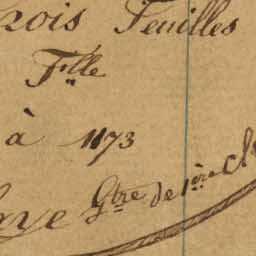 rois Feuilles
F.lle
à 1173
Gtre de 1ère Cl